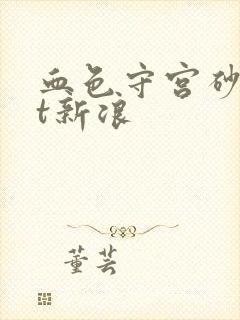 血色守宫砂
t新浪
董芸